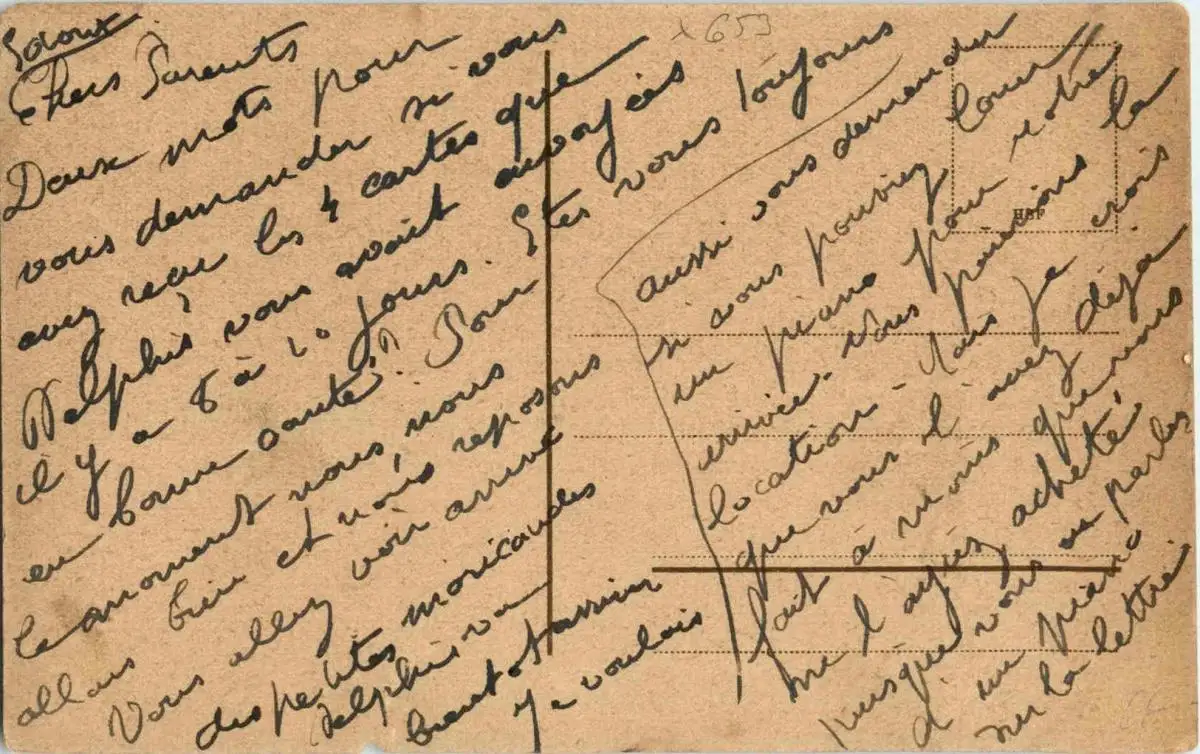 Chers Parents
Deux mots pour
vous demander si vous
avez reçu les 4 cartes que
Delphis vous avait envoyées
il y a 8 à 10 jours. Etes vous toujours
en bonne santé? Pour
le moment nous, nous
allons bien et nous reposons
Vous allez voir arrivé
des petites moricaudes
Delphis va
bientot arriver
Je voulais
aussi vous demander
si vous pouviez louer
un piano pour notre
arrivée. Nous paierions la
location. Mais je crois
que vous l'avez déjà
fait à moins que vous
me l'ayez acheté,
puisque vous en parlez
d'un piano
sur la lettre.
x 653